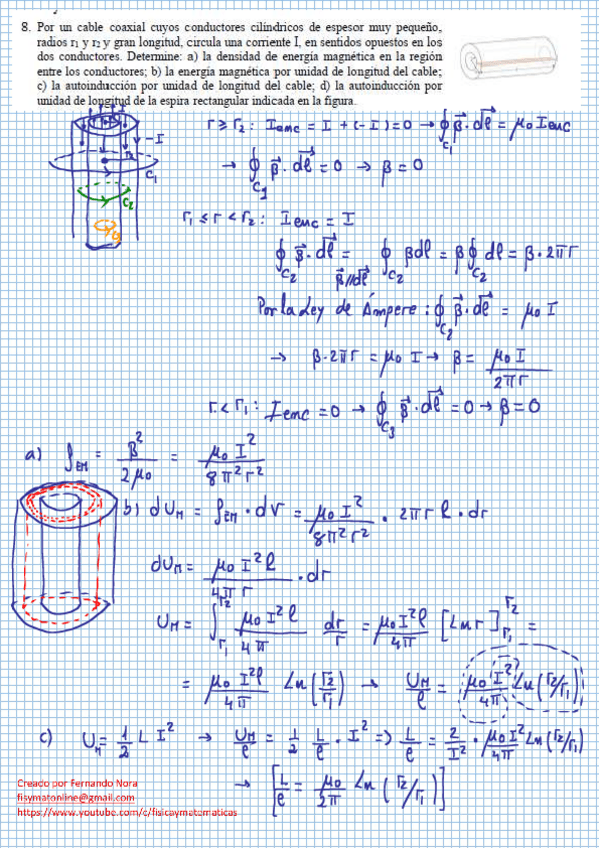 8. Por un cable coaxial cuyos conductores cilíndricos de espesor muy pequeño,
radios r₁ y r₂ y gran longitud, circula una corriente I, en sentidos opuestos en los
dos conductores. Determine: a) la densidad de energía magnética en la región
entre los conductores; b) la energía magnética por unidad de longitud del cable;
c) la autoinducción por unidad de longitud del cable; d) la autoinducción por
unidad de longitud de la espira rectangular indicada en la figura.
r ≥ r₂ : I enc = I + (-I) = 0 → ∮ β⃗ · dℓ⃗ = μ₀ I enc
C₁
-I
→ ∮ β⃗ · dℓ⃗ = 0 → β = 0
C₁
C₂
r₁ ≤ r < r₂ : I enc = I
∮C₂ β⃗ · dℓ⃗ = ∮C₂ β dℓ = β ∮C₂ dℓ = β · 2πr
β⃗ // dℓ⃗
Por la Ley de Ámpere : ∮C₂ β⃗ · dℓ⃗ = μ₀ I
→ β · 2πr = μ₀ I → β = μ₀ I / 2πr
r < r₁ : I enc = 0 → ∮C₃ β⃗ · dℓ⃗ = 0 → β = 0
a) ρEM = β² / 2μ₀ = μ₀ I² / 8π² r²
b) dUM = ρEM · dV = μ₀ I² / 8π² r² · 2πr ℓ · dr
dUM = μ₀ I² ℓ / 4π r · dr
UM = ∫r₁^r₂ μ₀ I² ℓ / 4π dr/r = μ₀ I² ℓ / 4π [Ln r]r₁^r₂ =
= μ₀ I² ℓ / 4π Ln (r₂/r₁) → UM/ℓ = μ₀ I² / 4π Ln (r₂/r₁)
c) UM = 1/2 L I² → UM/ℓ = 1/2 L/ℓ · I² => L/ℓ = 2/I² · μ₀ I² / 4π Ln (r₂/r₁)
→ [L/ℓ = μ₀/2π Ln (r₂/r₁)]
Creado por Fernando Nora
fisymatonline@gmail.com
https://www.youtube.com/c/fisicaymatematicas